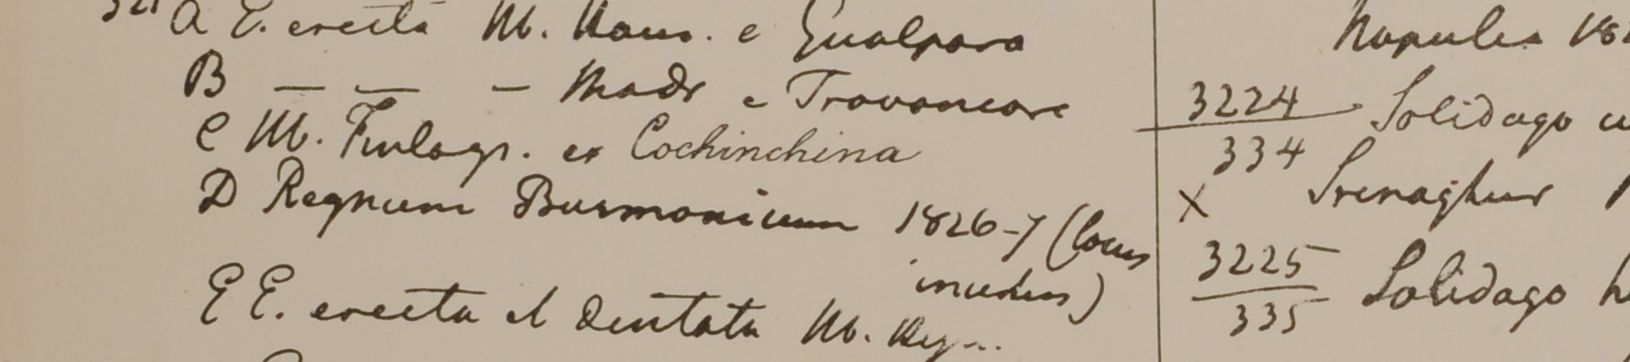 321 A E. erecta M. Ham. e Gualpara
B — — — Madr e Travancore
C M. Finlays. ex Cochinchina
D Regnum Burmanicum 1826-7 (locus
incertus)
E E. erecta et dentata M. Heyn.
Napulea
3224 Solidago
334
X Srenaghur
3225 Solidago
335